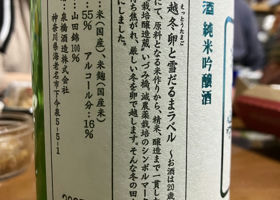 酒 純米吟醸酒
越冬卵と雪だるまラベル 〜お酒は20歳
えっとうたまご
にて、原料となる米作りから、精米、醸造まで一貫した
栽培醸造蔵、いづみ橋。減農薬栽培のシンボルマーク
ら焦がれ、厳しい冬を卵で越します。そんな冬の田
にしました。
・米(国産)、米麹(国産米)
:55% アルコール分:16%
:山田錦100%
:泉橋酒造株式会社
神奈川県海老名市下今泉5-5-1